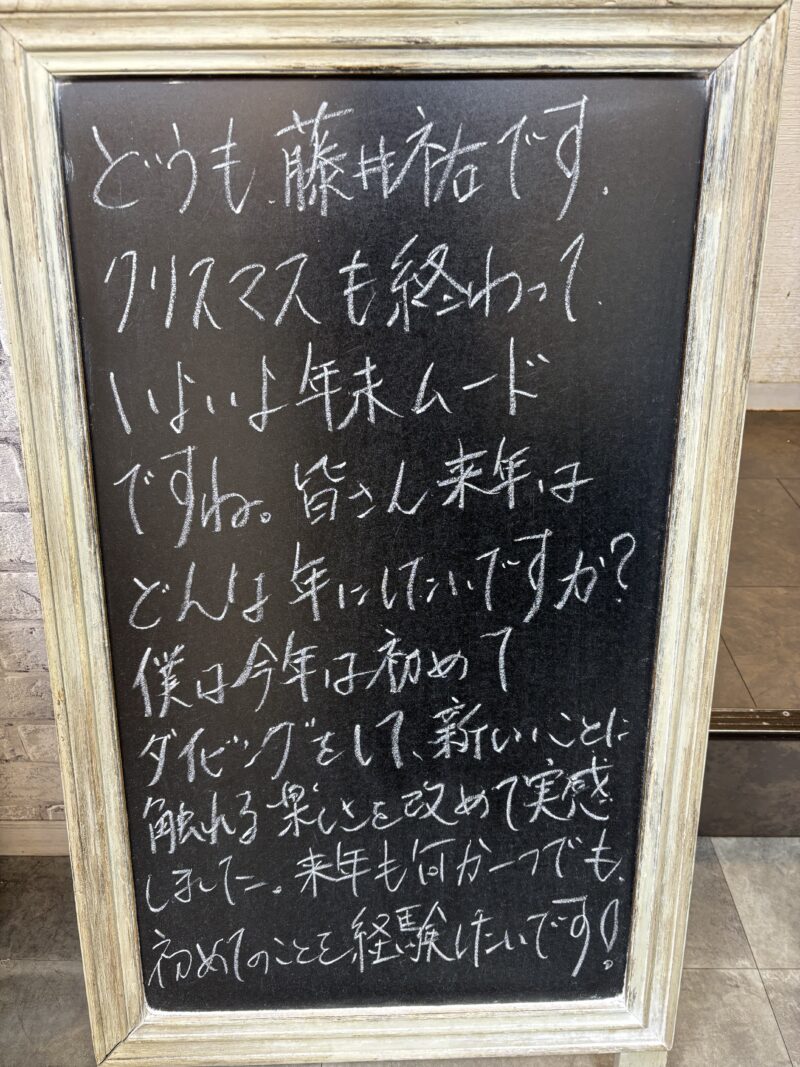 どうも、藤井祐です。
クリスマスも終わって、
いよいよ年末ムード
ですね。皆さん来年は
どんな年にしたいですか?
僕は今年は初めて
ダイビングをして、新しいことに
触れる楽しさを改めて実感
しました。来年も何か一つでも、
初めてのことを経験したいです!